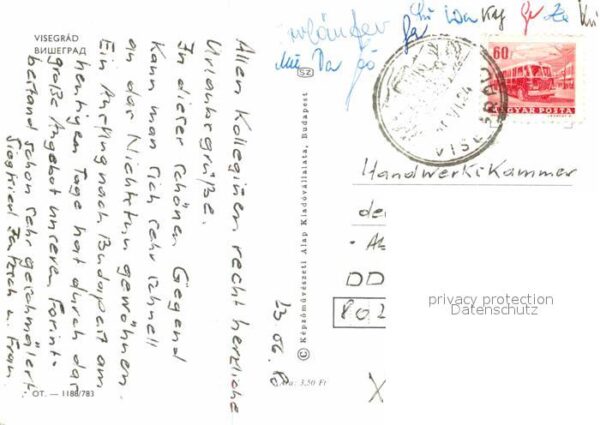 VISEGRÁD
ВИШЕГРАД
Allen Kolleginen recht herzliche
Urlaubsgrüße.
In dieser schönen Gegend
kann man sich sehr schnell
an das Nichtstun gewöhnen.
Ein Ausflug nach Budapest am
heutigen Tage hat durch das
große Angebot unseren Forint-
bestand schon sehr geschmälert.
Siegfried u. Frau
OT. — 1188/783
SZ
© Képzőművészeti Alap Kiadóvállalata, Budapest
Ára: 3,50 Ft
60
MAGYAR POSTA
VISEGRÁD
Handwerkskammer
de
DD
80
X
privacy protection
Datenschutz